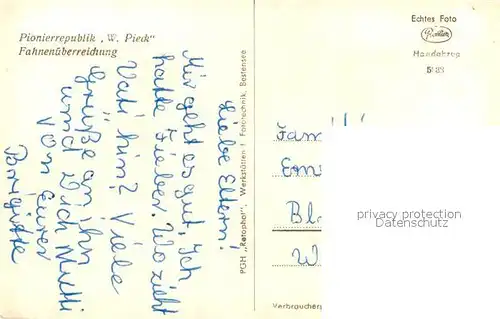 Pionierrepublik „W. Pieck"
Fahnenüberreichung
Liebe Eltern!
Mir geht es gut. Ich
hatte Fieber. Wo zieht
Vati hin? Viele
Grüße an ihn
und Dich Mutti
von Eurer
Brigitte
PGH „Rotophot", Werkstätten f. Fototechnik, Bestensee
Echtes Foto
Handabzug
Fam
Em
Bl
W
privacy protection
Datenschutz
Verbraucherp